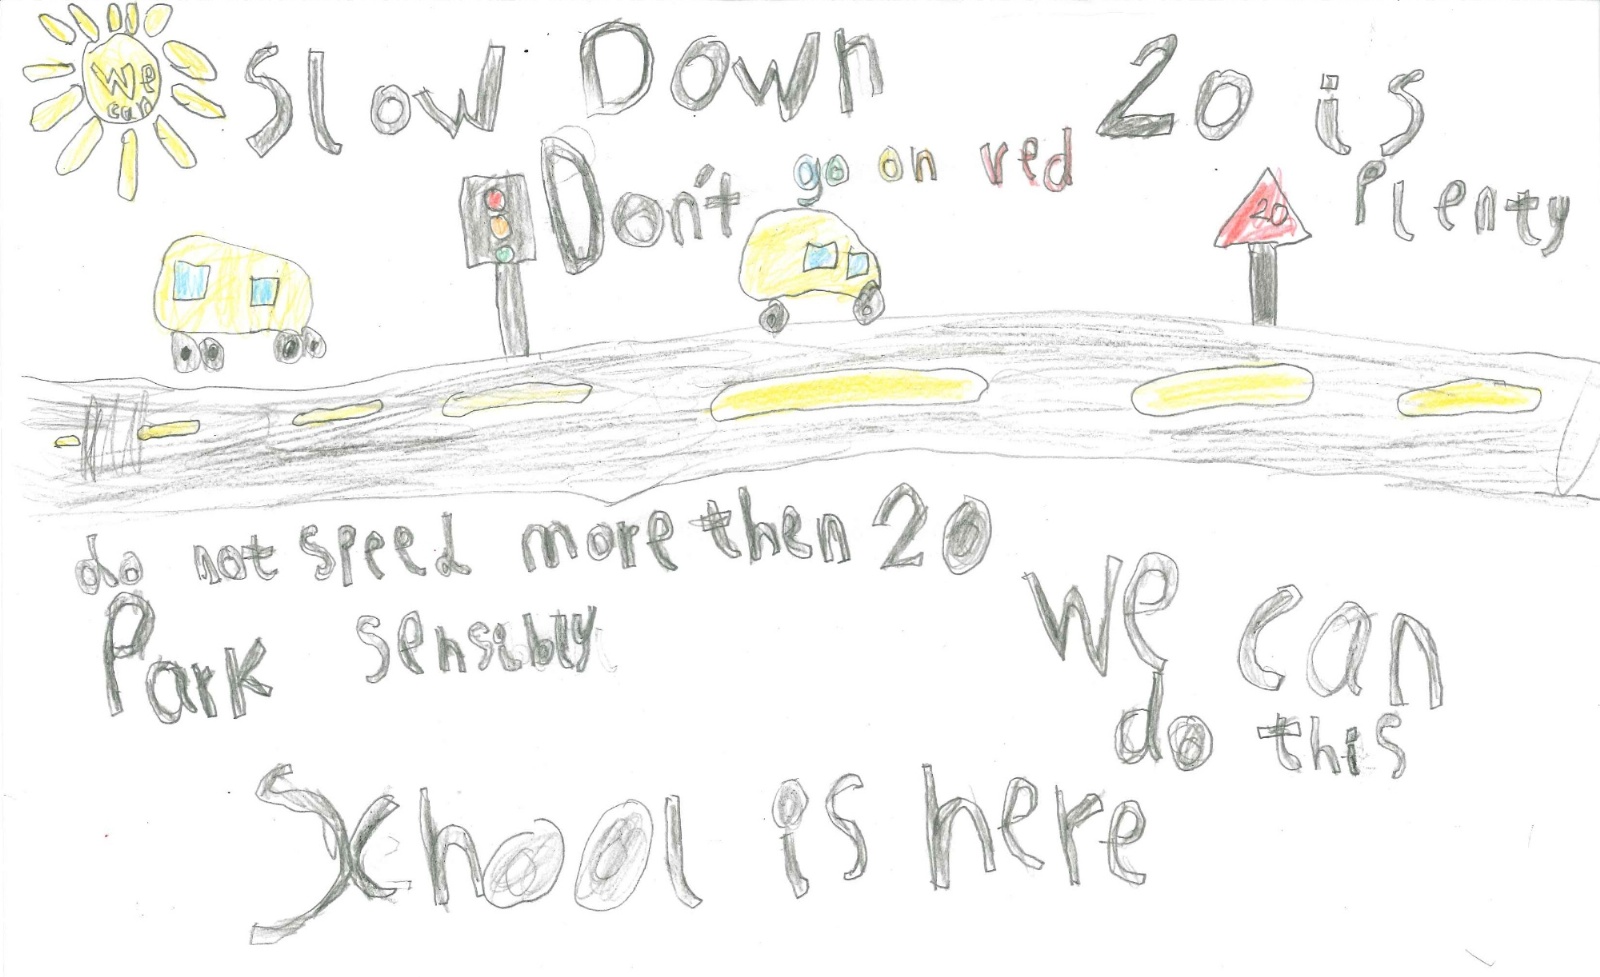 We
can
Slow Down
20 is
Plenty
Don't go on red
20
do not speed more then 20
Park sensibly
We can
do this
School is here